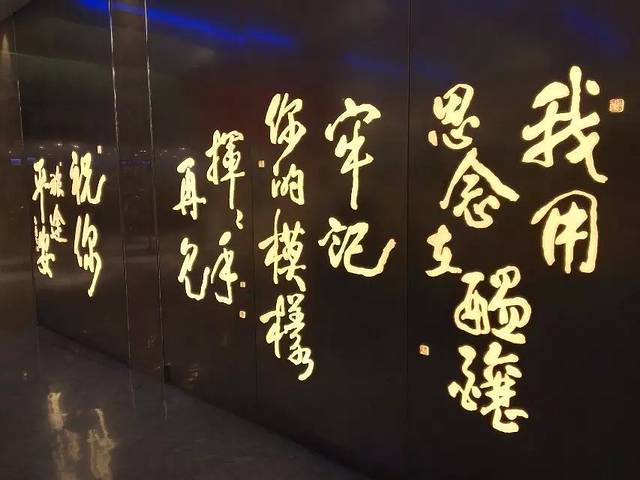 我用
思念在
醖釀
牢記
你的模樣
揮〻手
再見
祝你
旅途
平安